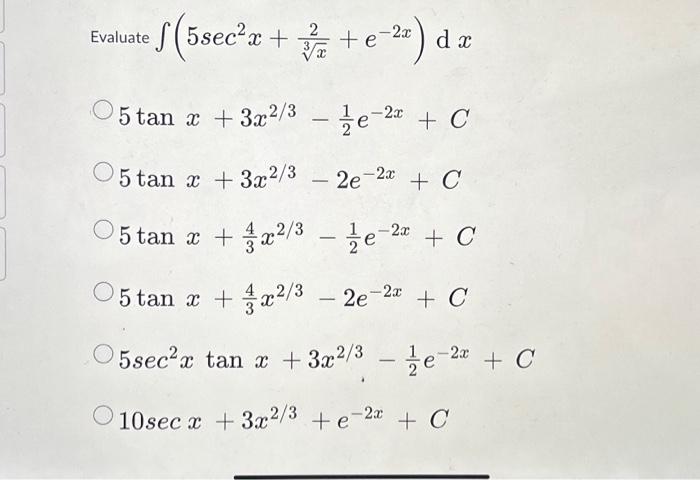 Evaluate ∫(5sec²x + 2/∛x + e^{-2x}) d x
5 tan x + 3x^{2/3} − 1/2 e^{-2x} + C
5 tan x + 3x^{2/3} − 2e^{-2x} + C
5 tan x + 4/3 x^{2/3} − 1/2 e^{-2x} + C
5 tan x + 4/3 x^{2/3} − 2e^{-2x} + C
5sec²x tan x + 3x^{2/3} − 1/2 e^{-2x} + C
10sec x + 3x^{2/3} + e^{-2x} + C